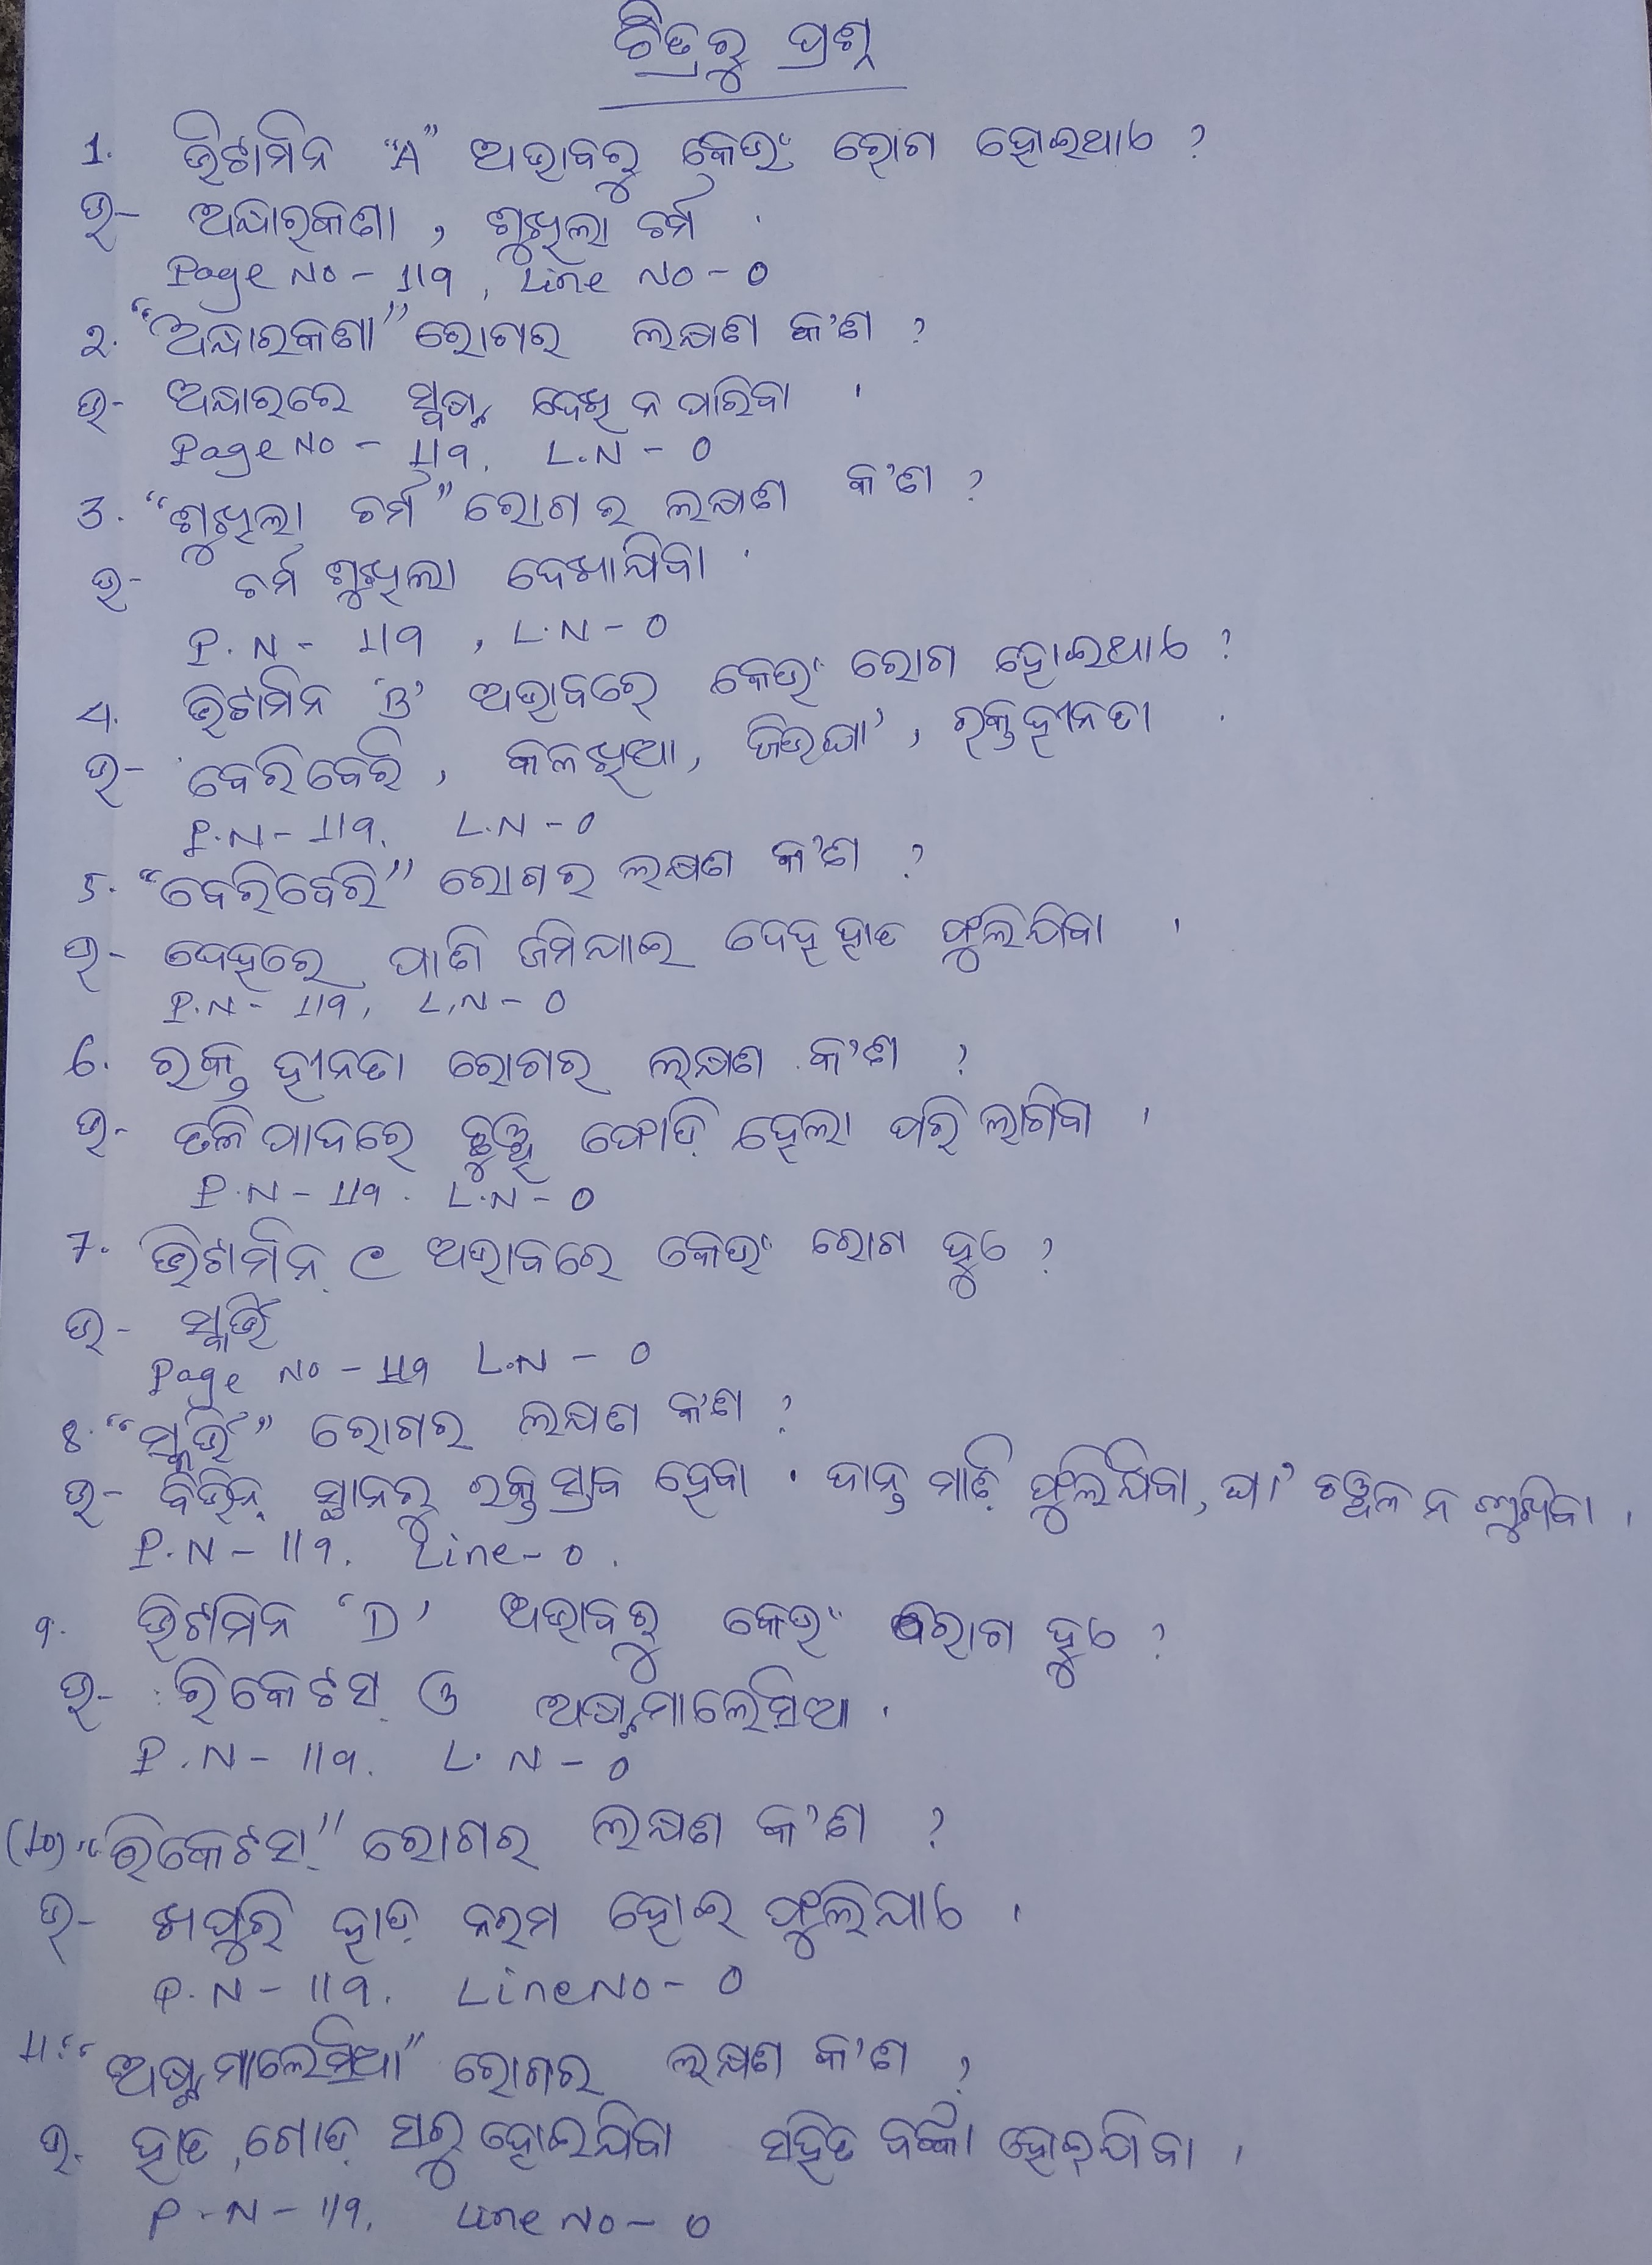 ଚିତ୍ରରୁ ପ୍ରଶ୍ନ
1. ଭିଟାମିନ "A" ଅଭାବରୁ କେଉଁ ରୋଗ ହୋଇଥାଏ ?
ଉ- ଅନ୍ଧାରକଣା , ଶୁଖିଲା ଚର୍ମ ।
Page No - 119 , Line No - 0
2. "ଅନ୍ଧାରକଣା" ରୋଗର ଲକ୍ଷଣ କ'ଣ ?
ଉ- ଅନ୍ଧାରରେ ସ୍ପଷ୍ଟ ଦେଖି ନ ପାରିବା ।
Page No - 119, L.N - 0
3. "ଶୁଖିଲା ଚର୍ମ" ରୋଗର ଲକ୍ଷଣ କ'ଣ ?
ଉ- ଚର୍ମ ଶୁଖିଲା ଦେଖାଯିବା ।
P.N - 119 , L.N - 0
4. ଭିଟାମିନ 'B' ଅଭାବରେ କେଉଁ ରୋଗ ହୋଇଥାଏ ?
ଉ- ବେରିବେରି , କଳଖିଆ, ଜିଭଘା' , ରକ୍ତହୀନତା .
P.N - 119. L.N - 0
5. "ବେରିବେରି" ରୋଗର ଲକ୍ଷଣ କ'ଣ ?
ଉ- ଦେହରେ ପାଣି ଜମିଯାଇ ଦେହ ହାତ ଫୁଲିଯିବା ।
P.N - 119, L.N - 0
6. ରକ୍ତ ହୀନତା ରୋଗର ଲକ୍ଷଣ କ'ଣ ?
ଉ- ତଳିପାଦରେ ଛୁଞ୍ଚି ଫୋଡ଼ି ହେଲା ପରି ଲାଗିବା ।
P.N - 119. L.N - 0
7. ଭିଟାମିନ୍ C ଅଭାବରେ କେଉଁ ରୋଗ ହୁଏ ?
ଉ- ସ୍କର୍ଭି
Page No - 119 L.N - 0
8. "ସ୍କର୍ଭି" ରୋଗର ଲକ୍ଷଣ କ'ଣ ?
ଉ- ବିଭିନ୍ନ ସ୍ଥାନରୁ ରକ୍ତସ୍ରାବ ହେବା । ଦାନ୍ତ ମାଢ଼ି ଫୁଲିଯିବା, ଘା' ଚଞ୍ଚଳ ନ ଶୁଖିବା ।
P.N - 119. Line - 0 .
9. ଭିଟାମିନ 'D' ଅଭାବରୁ କେଉଁ ରୋଗ ହୁଏ ?
ଉ- ରିକେଟସ୍ ଓ ଅଷ୍ଟମାଲେସିଆ ।
P.N - 119. L.N - 0
(10) "ରିକେଟସ୍" ରୋଗର ଲକ୍ଷଣ କ'ଣ ?
ଉ- ଖପୁରି ହାଡ଼ ନରମ ହୋଇ ଫୁଲିଯାଏ ।
P.N - 119. Line No - 0
11. "ଅଷ୍ଟମାଲେସିଆ" ରୋଗର ଲକ୍ଷଣ କ'ଣ ?
ଉ. ହାତ ,ଗୋଡ଼ ସରୁ ହୋଇଯିବା ସହିତ ବଙ୍କା ହୋଇଯିବା ।
P.N - 119. Line No - 0